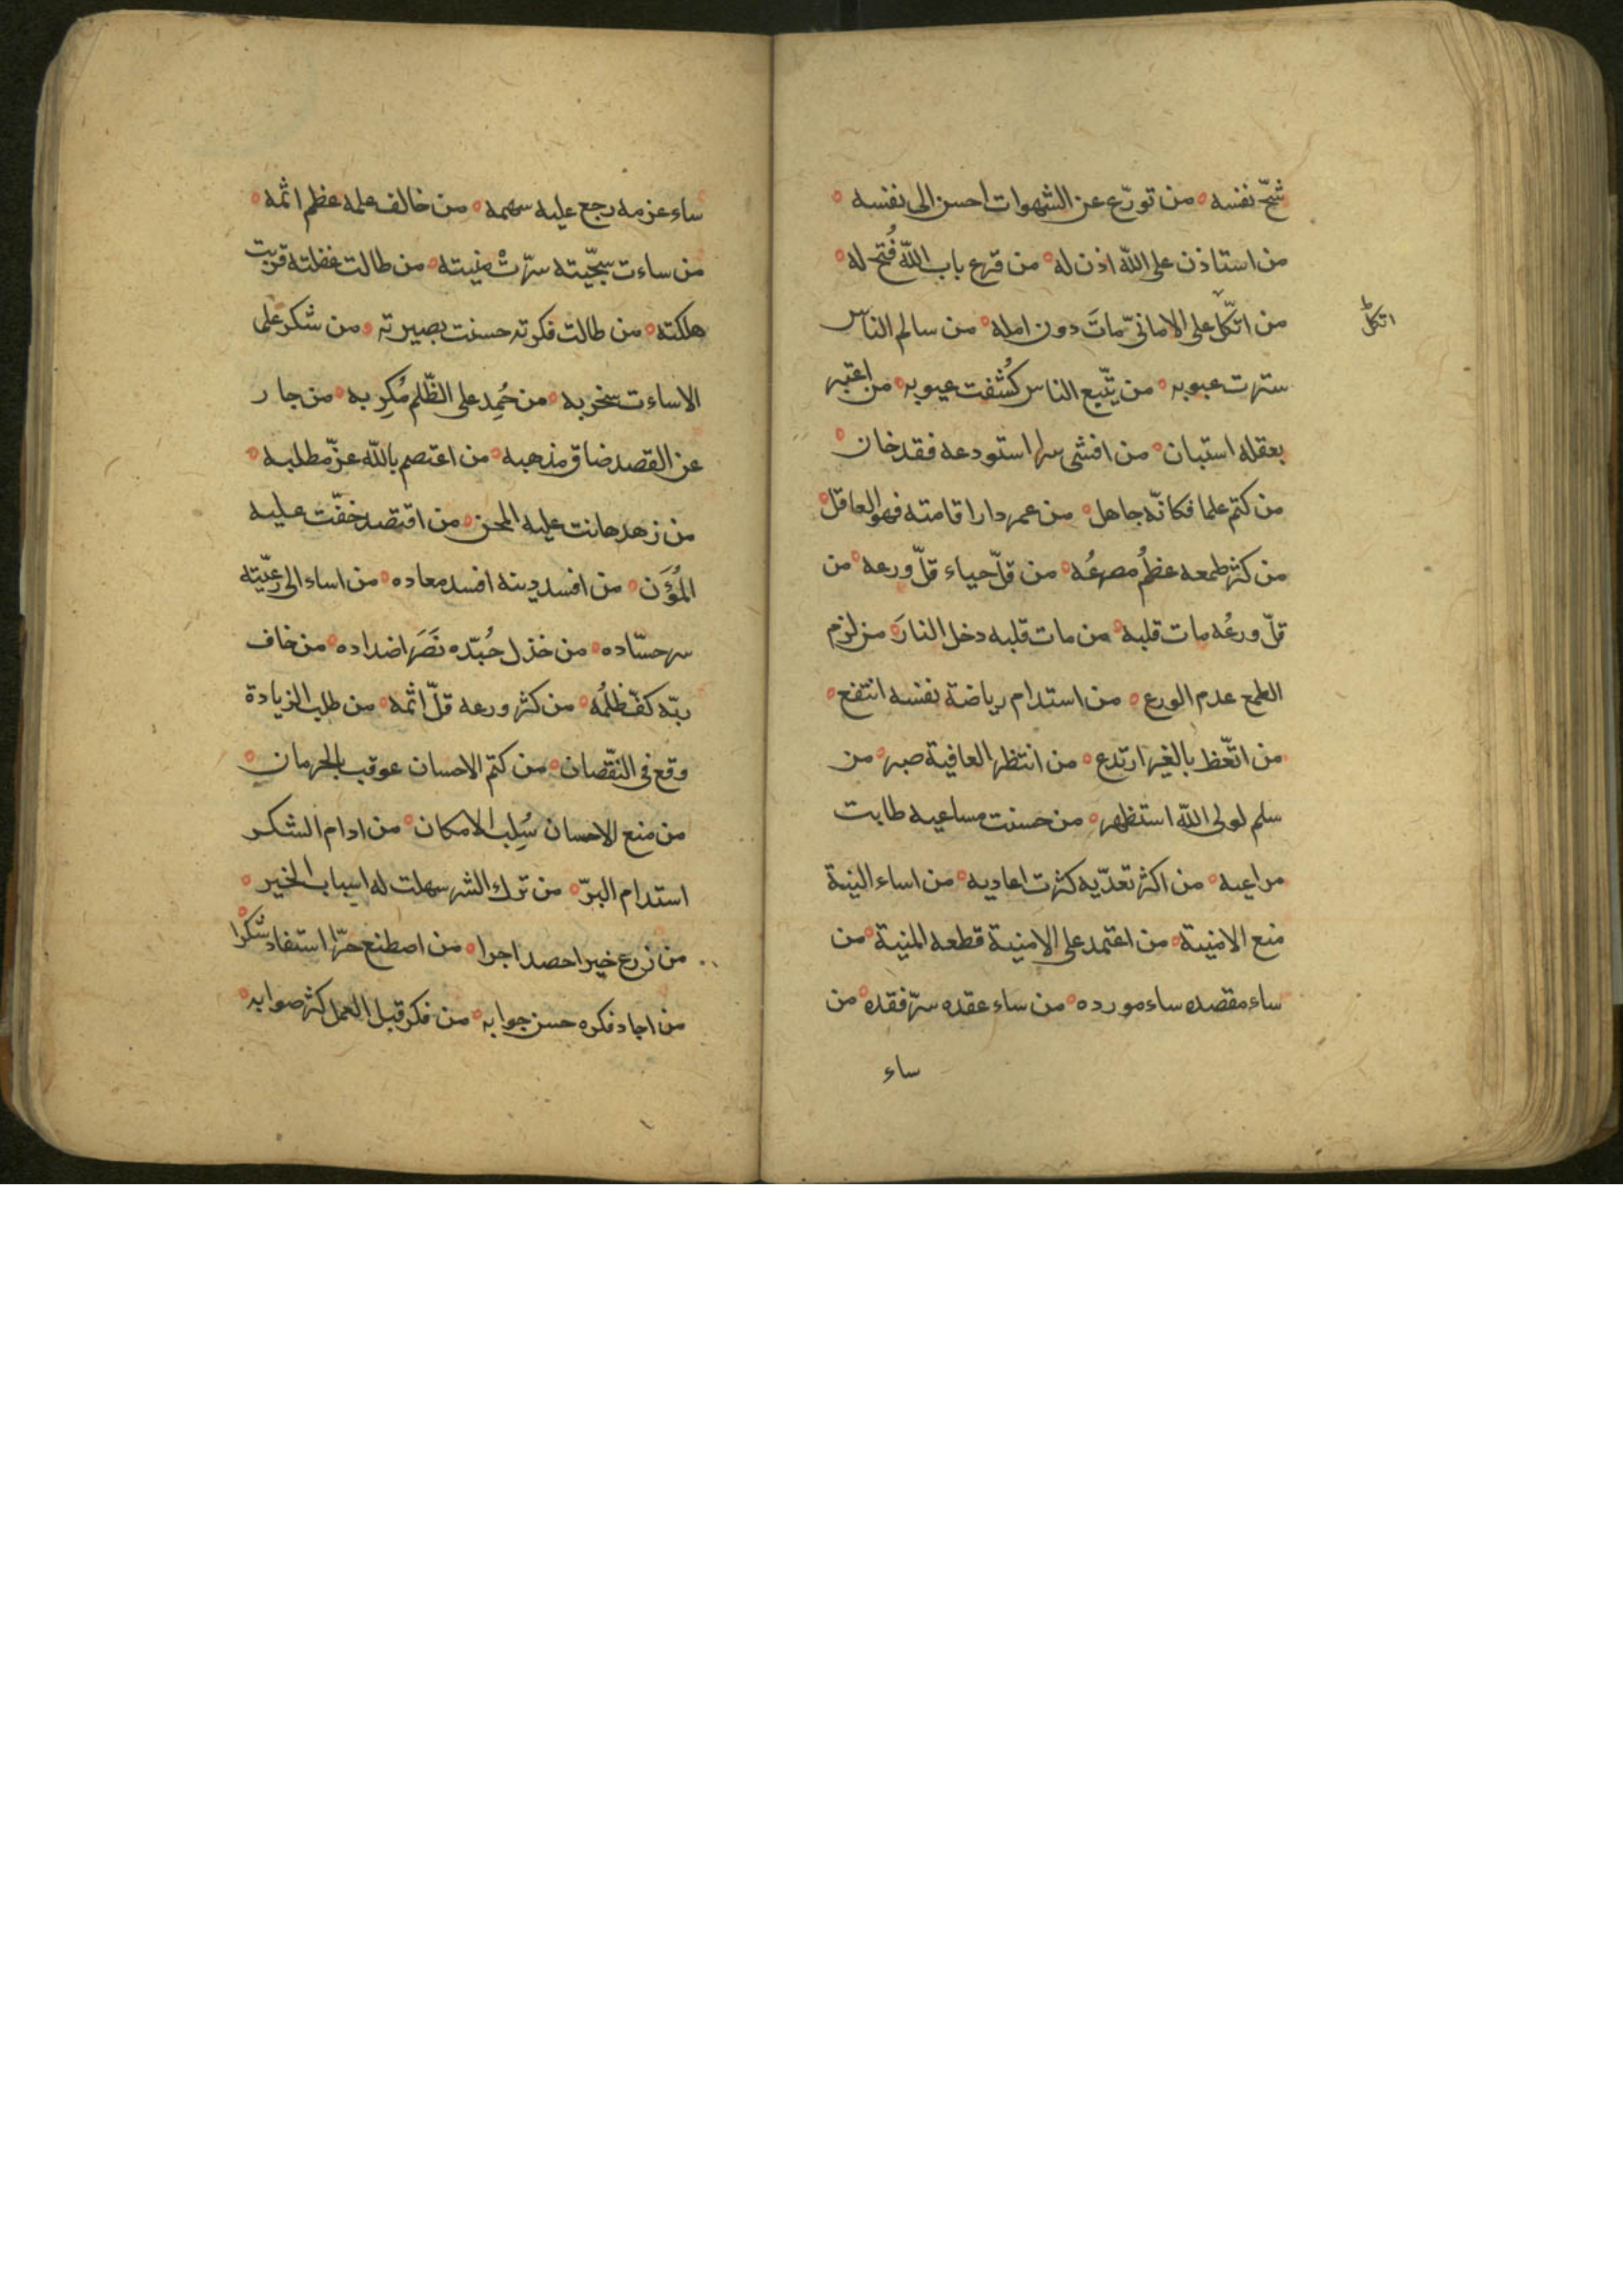 شحّ نفسه ه من تورّع عن الشهوات احسن الى نفسه ه
من استاذن على اللّه اذن له ه من قرع باب اللّه فُتح له ه
من اتّكا على الامانيّ مات دون امله ه من سالم الناس
اتكل
سترت عيوبه ه من يتّبع الناس كُشفت عيوبه ه من اعتبر
بعقله استبان ه من افشى سرا استودعه فقد خان ه
من كتم علما فكانّه جاهل ه من عمر دار اقامته فهو العاقل ه
من كثر طمعه عظُم مصرعُه ه من قلّ حياء قلّ ورعه ه من
قلّ ورعُه مات قلبه ه من مات قلبه دخل النارَ ه من لزم
الطمع عدم الورع ه من استدام رياضة نفسه انتفع ه
من اتّعظ بالغير ارتدع ه من انتظر العافية صبر ه من
سلم لولى اللّه استظهر ه من حسنت مساعيه طابت
مراعيه ه من اكثر تعدّيه كثرت اعاديه ه من اساء النية
منع الامنية ه من اعتمد على الامنية قطعه المنية ه من
ساء مقصده ساء مورده ه من ساء عقده سرّ فقده ه من
ساء
ساء عزمه رجع عليه سهمه ه من خالف علمه عظم اثمه ه
من ساءت سجّيته سرّتْ منيته ه من طالت غفلته قربت
هلكته ه من طالت فكرته حسنت بصيرته ه من شكر على
الاساءت سخر به ه من حُمِد على الظّلم مُكِر به ه من جار
عن القصد ضاق مذهبه ه من اعتصم باللّه عزّ مطلبه ه
من زهد هانت عليه المحن ه من اقتصد خفّت عليه
المُؤَن ه من افسد دينه افسد معاده ه من اساء الى رعيّته
سر حسّاده ه من خذل جُنده نَصَر اضداده ه من خاف
ربّه كفّ ظلمُه ه من كثر ورعه قلّ اثمه ه من طلب الزيادة
وقع فى النقّصان ه من كتم الاحسان عوقب بالحرمان ه
من منع الاحسان سُلِب الامكان ه من ادام الشكر
استدام البرّ ه من ترك الشر سهلت له اسباب الخير ه
من زرع خيرا حصد اجرا ه من اصطنع حرّا استفاد شكرا ه
من اجاد فكره حسن جوابه ه من فكر قبل العمل كثر صوابه ه